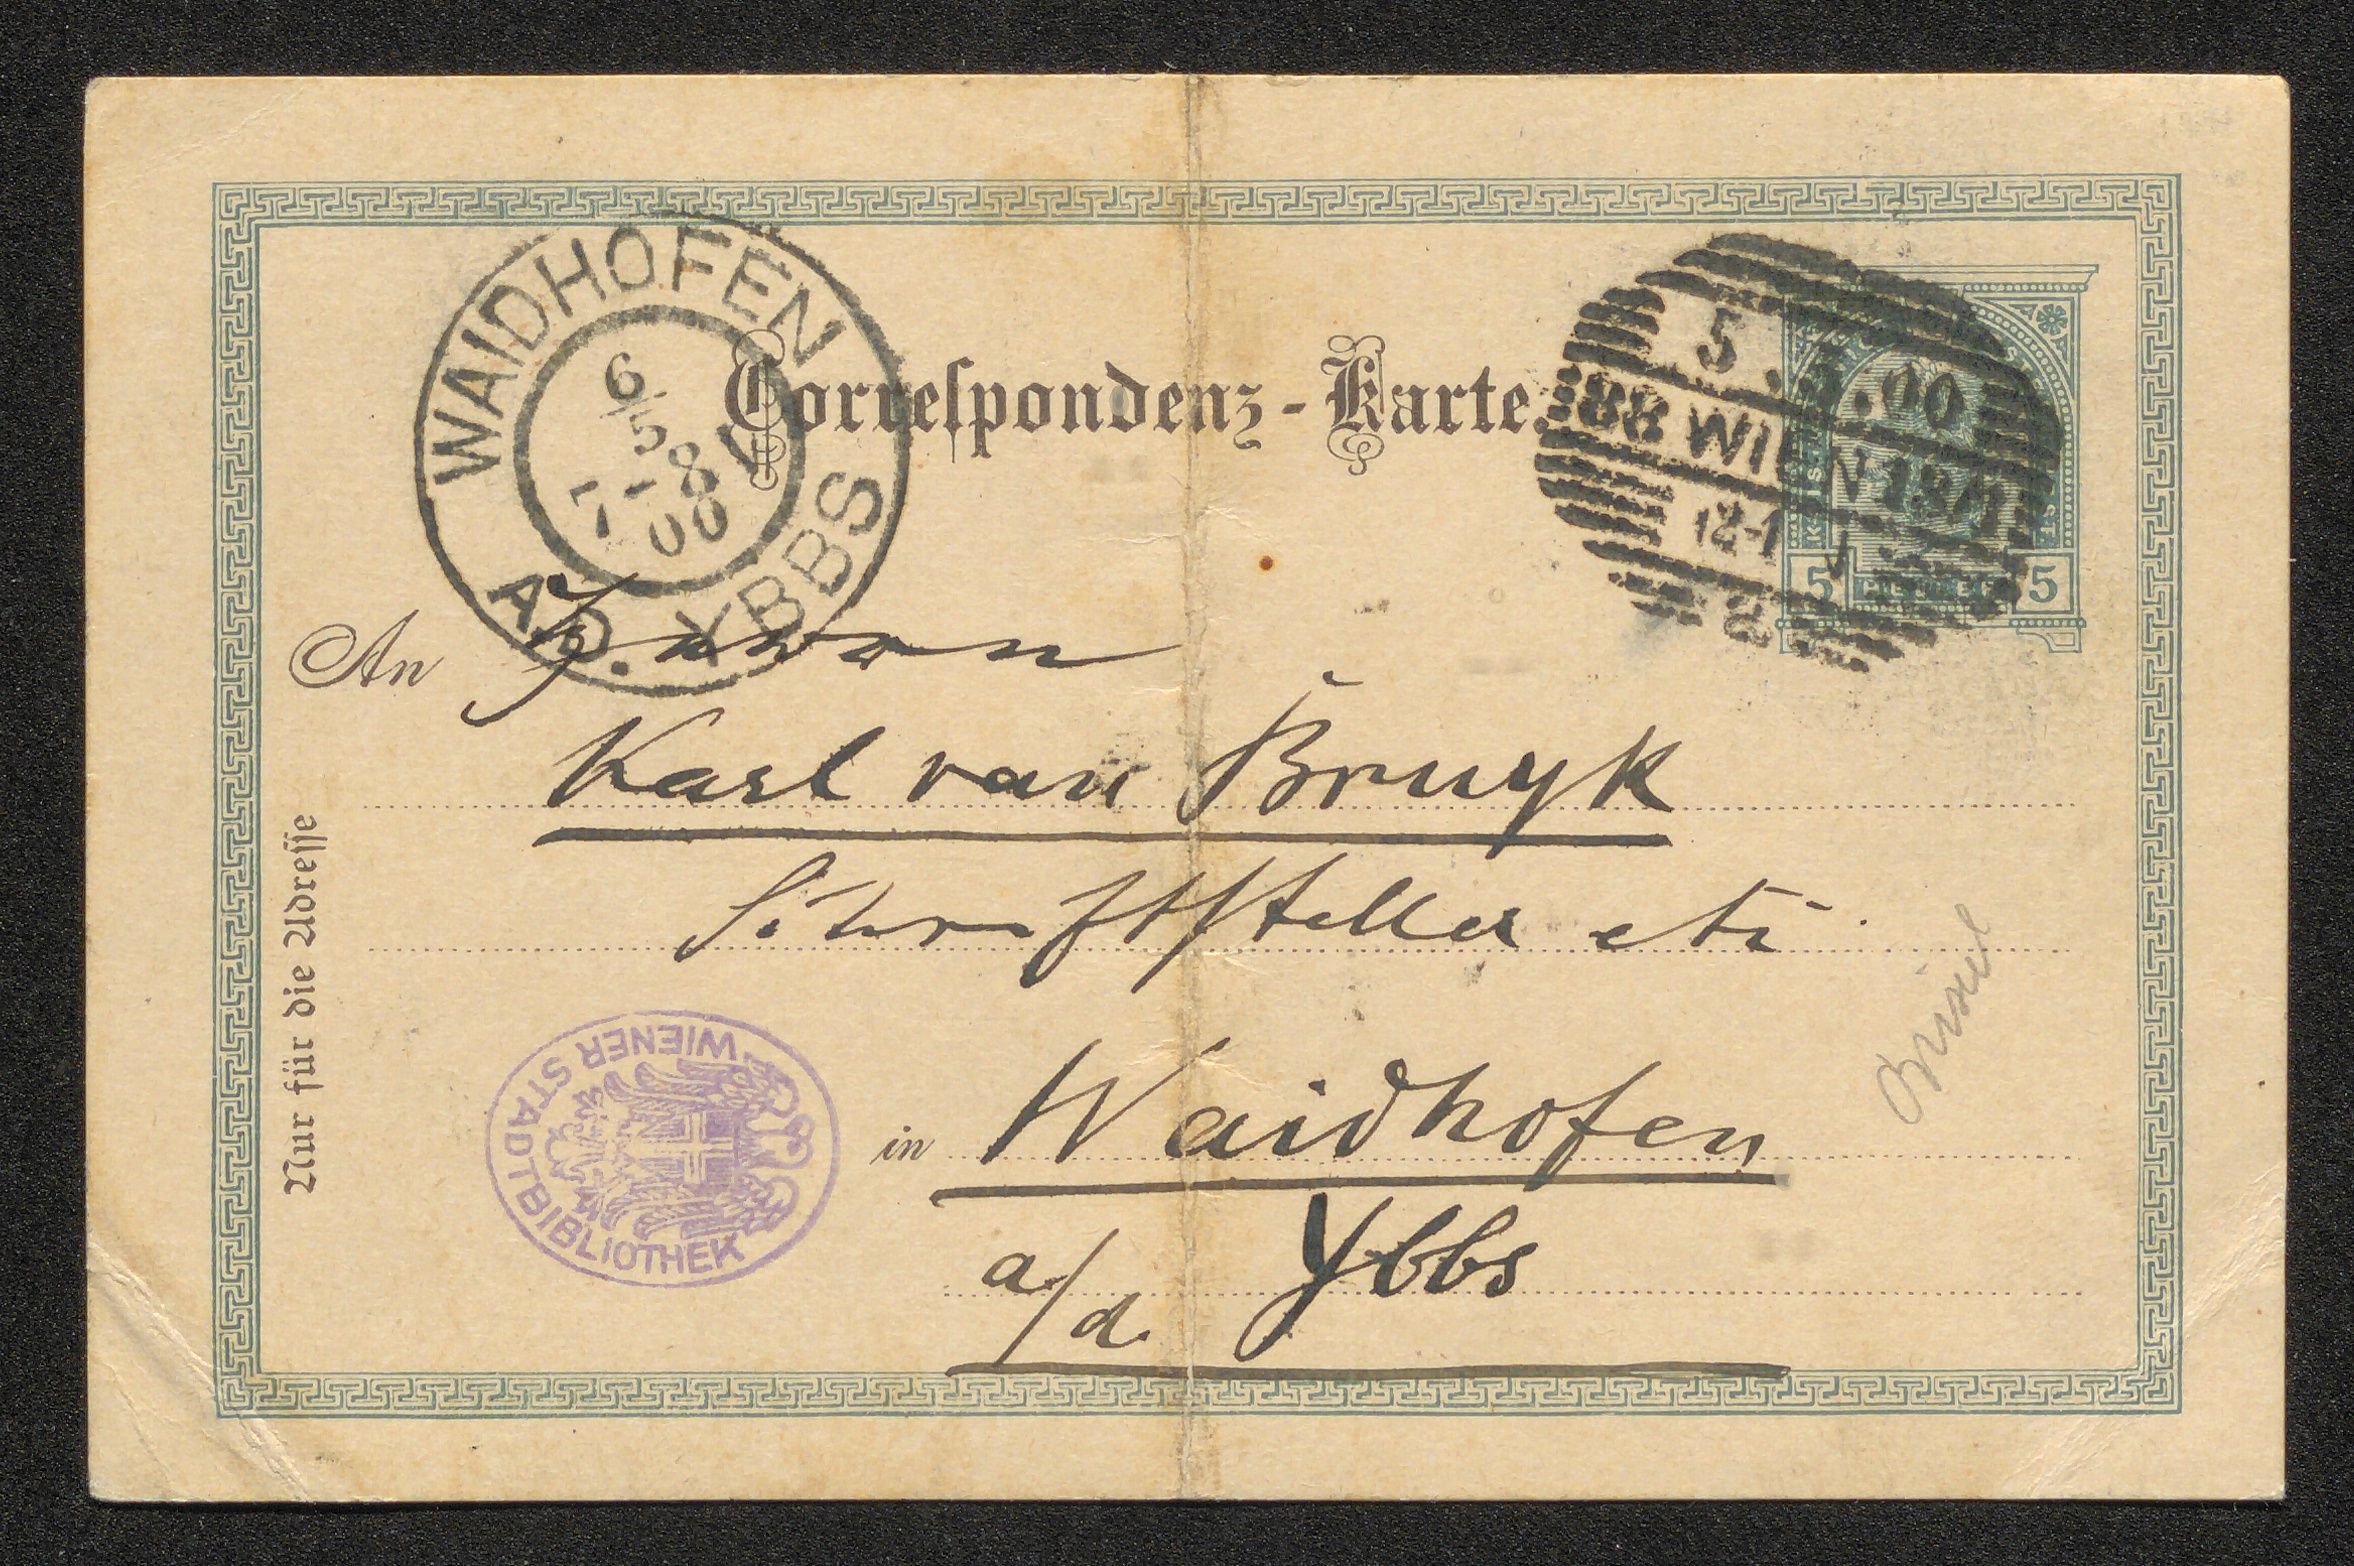 Correspondenz-Karte.
WAIDHOFEN
A.D. YBBS
6/5
7-8 V
00
5.5.00
WIEN
12-1
5 5
An
Karl van Bruyk
Schriftsteller etc.
in Waidhofen
a/d. Ybbs
Nur für die Adresse
WIENER STADTBIBLIOTHEK